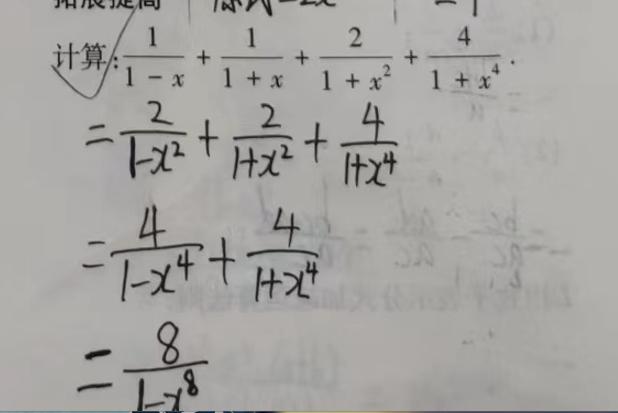 拓展提高 原式=2x =1
计算: \frac{1}{1-x} + \frac{1}{1+x} + \frac{2}{1+x^2} + \frac{4}{1+x^4}.
= \frac{2}{1-x^2} + \frac{2}{1+x^2} + \frac{4}{1+x^4}
= \frac{4}{1-x^4} + \frac{4}{1+x^4}
= \frac{8}{1-x^8}